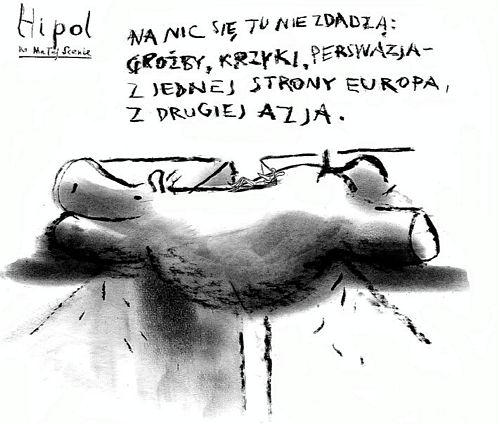 Hipol
w Małej Scenie
NA NIC SIĘ TU NIE ZDADZĄ:
GROŹBY, KRZYKI, PERSWAZJA–
Z JEDNEJ STRONY EUROPA,
Z DRUGIEJ AZJA.